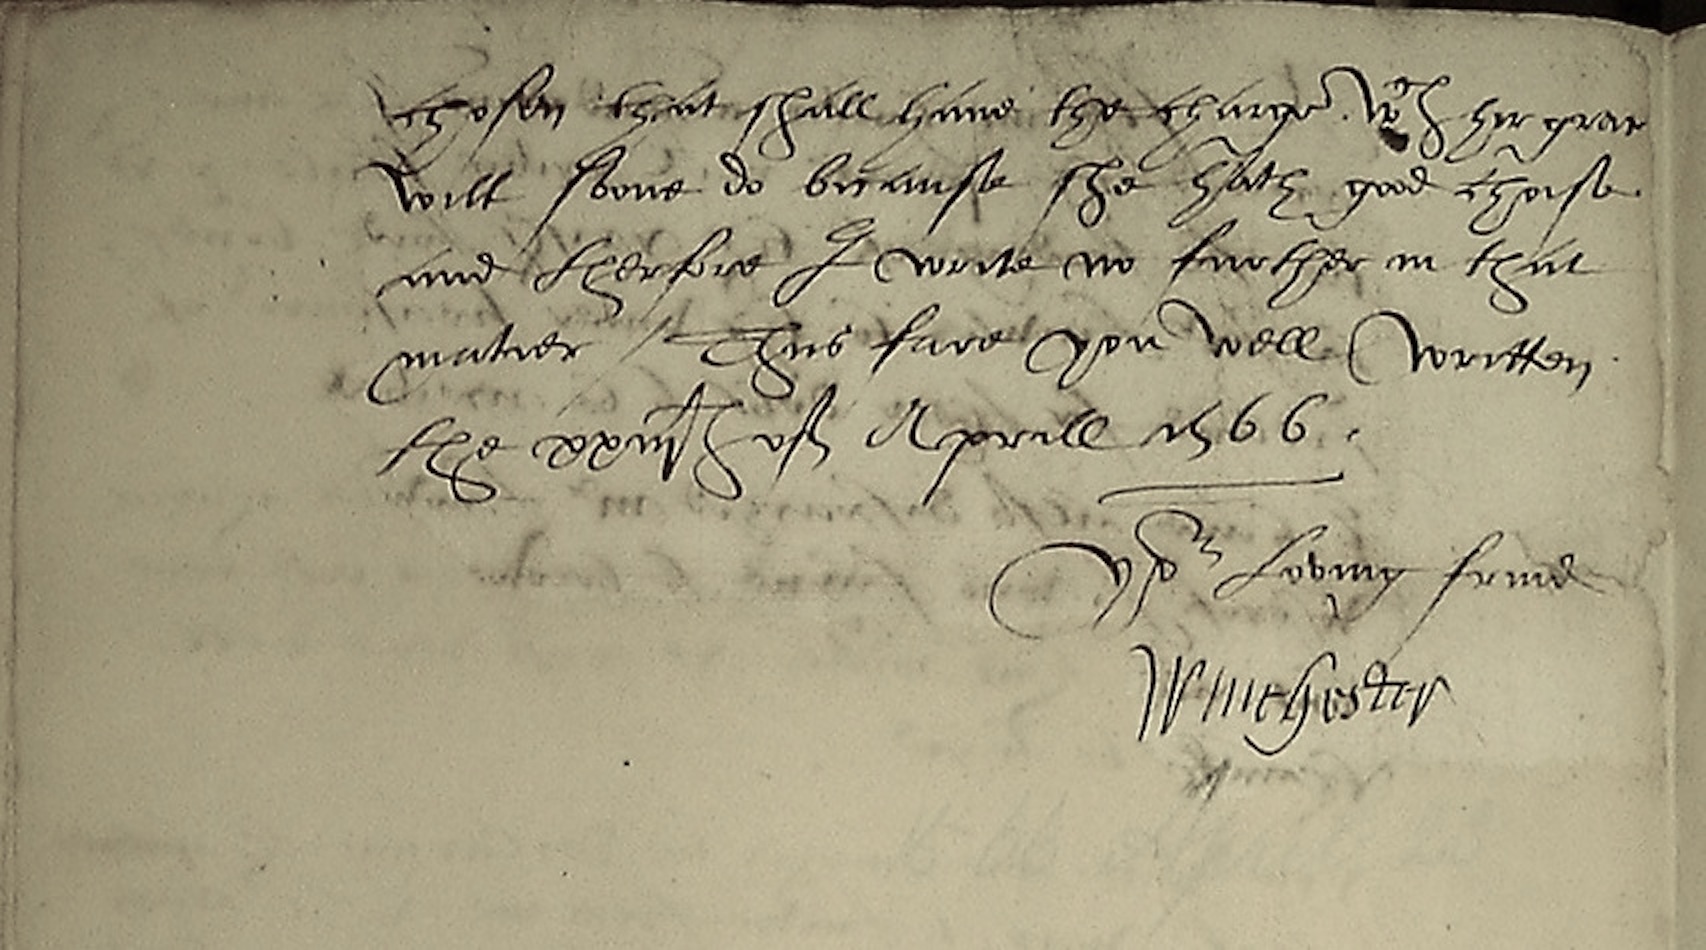 chosen that shall haue the charge. wch her grace
will soone do because she hath good choise.
and therfore I write no further in that
matter / Thus fare you well Written
the xxiiijth of Aprill 1566.
Yor Loving frind
Winchester